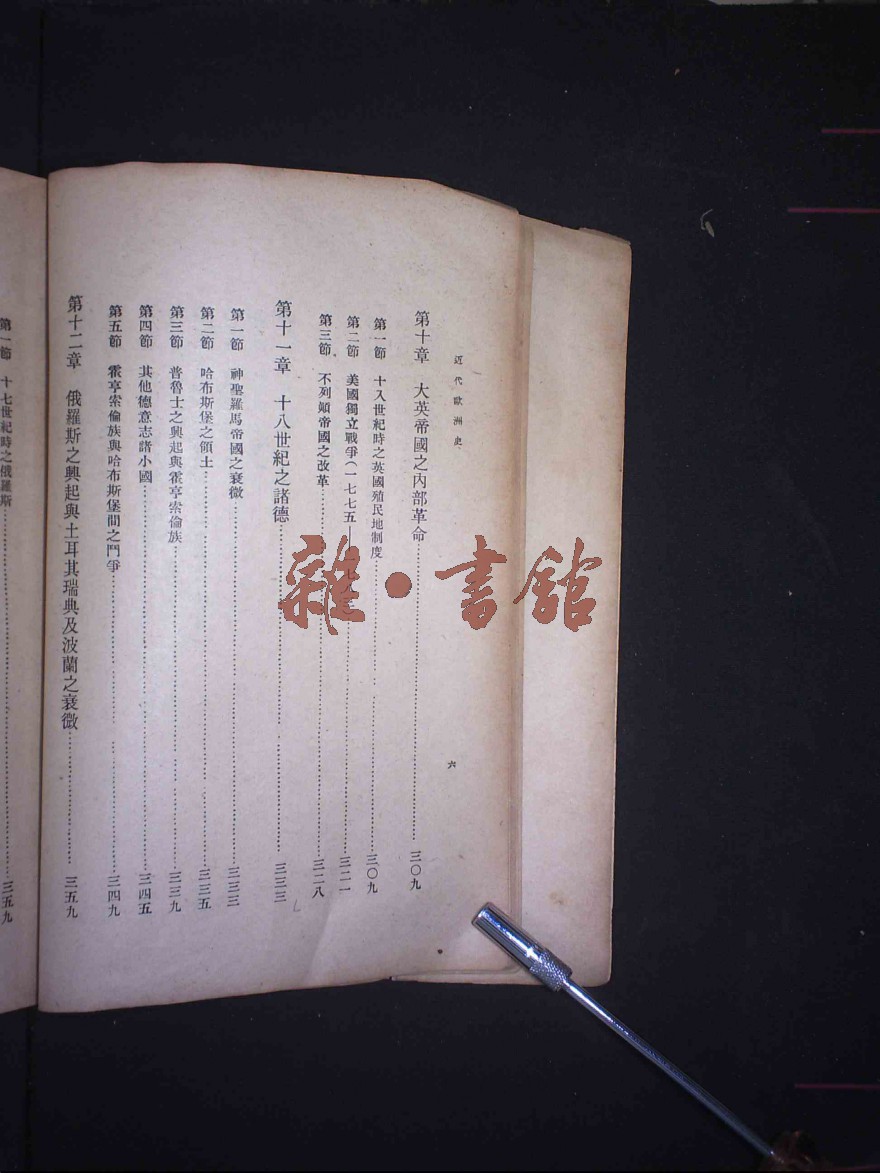 近代歐洲史
六
第十章 大英帝國之內部革命……三〇九
第一節 十八世紀時之英國殖民地制度……三〇九
第二節 美國獨立戰爭(一七七五—……三二一
第三節 不列顛帝國之改革……三二八
第十一章 十八世紀之諸德……三三三
第一節 神聖羅馬帝國之衰微……三三三
第二節 哈布斯堡之領土……三三五
第三節 普魯士之興起與霍亨索倫族……三三九
第四節 其他德意志諸小國……三四五
第五節 霍亨索倫族與哈布斯堡間之鬥爭……三四九
第十二章 俄羅斯之興起與土耳其瑞典及波蘭之衰微……三五九
第一節 十七世紀時之俄羅斯……三五九
雜·書館